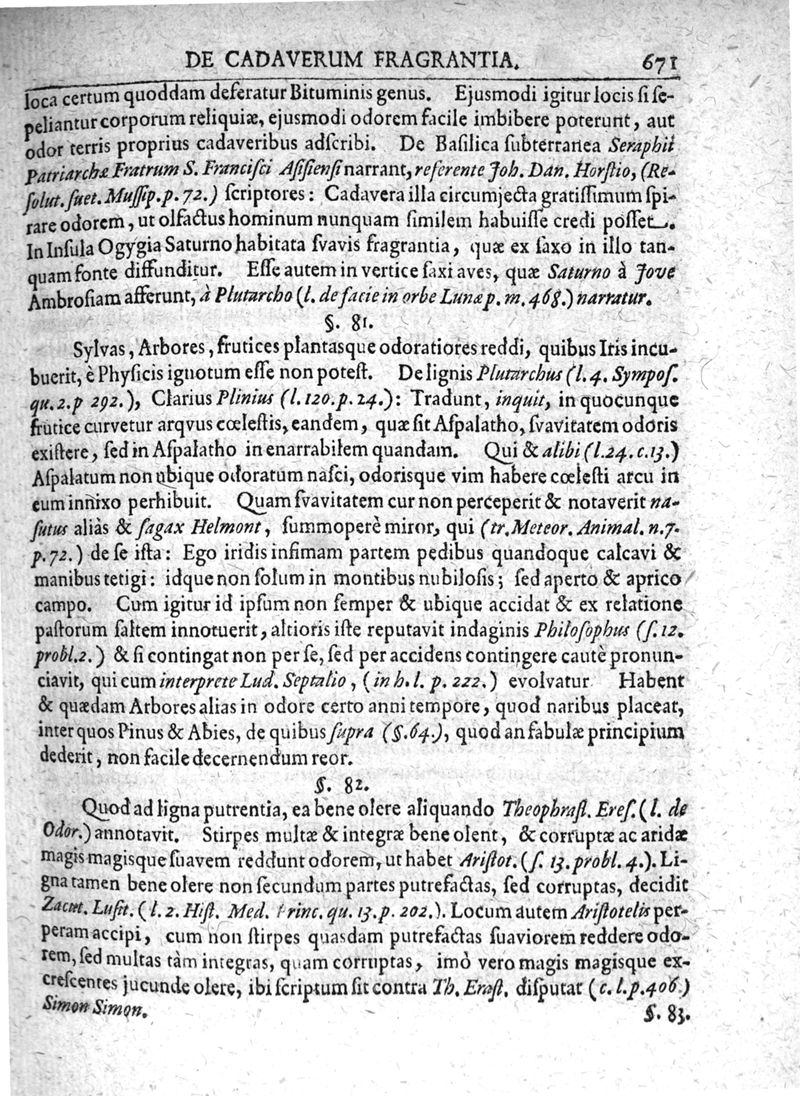 DE CADAVERUM FRAGRANTIA. 671
loca certum quoddam deferatur Bituminis genus. Ejusmodi igitur locis ſi ſe-
peliantur corporum reliquiæ, ejusmodi odorem facile imbibere poterunt, aut
odor terris proprius cadaveribus adſcribi. De Baſilica ſubterranea Seraphii
Patriarchæ Fratrum S. Franciſci Aſiſienſi narrant, referente Joh. Dan. Horſtio, (Re-
ſolut. ſuet. Muſſip. p. 72.) ſcriptores: Cadavera illa circumjecta gratiſſimum ſpi-
rare odorem, ut olfactus hominum nunquam ſimilem habuiſſe credi poſſet.
In Inſula Ogygia Saturno habitata ſvavis fragrantia, quæ ex ſaxo in illo tan-
quam fonte diffunditur. Eſſe autem in vertice ſaxi aves, quæ Saturno à Jove
Ambroſiam afferunt, à Plutarcho (l. de facie in orbe Lunæ p. m. 468.) narratur.
§. 81.
Sylvas, Arbores, frutices plantasque odoratiores reddi, quibus Iris incu-
buerit, è Phyſicis ignotum eſſe non poteſt. De lignis Plutarchus (l. 4. Sympoſ.
qu. 2. p 292.), Clarius Plinius (l. 120. p. 24.): Tradunt, inquit, in quocunque
frutice curvetur arqvus cœleſtis, eandem, quæ ſit Aſpalatho, ſvavitatem odoris
exiſtere, ſed in Aſpalatho inenarrabilem quandam. Qui & alibi (l. 24. c. 13.)
Aſpalatum non ubique odoratum naſci, odorisque vim habere cœleſti arcu in
eum innixo perhibuit. Quam ſvavitatem cur non perceperit & notaverit na-
ſutus aliàs & ſagax Helmont, ſummoperè miror, qui (tr. Meteor. Animal. n. 7.
p. 72.) de ſe iſta: Ego iridis infimam partem pedibus quandoque calcavi &
manibus tetigi: idque non ſolum in montibus nubiloſis; ſed aperto & aprico
campo. Cum igitur id ipſum non ſemper & ubique accidat & ex relatione
paſtorum ſaltem innotuerit, altioris iſte reputavit indaginis Philoſophus (ſ. 12.
probl. 2.) & ſi contingat non per ſe, ſed per accidens contingere cautè pronun-
ciavit, qui cum interprete Lud. Septalio, (in h. l. p. 222.) evolvatur Habent
& quædam Arbores alias in odore certo anni tempore, quod naribus placeat,
inter quos Pinus & Abies, de quibus ſupra (§. 64.), quod an fabulæ principium
dederit, non facile decernendum reor.
§. 82.
Quod ad ligna putrentia, ea bene olere aliquando Theophraſt. Ereſ. (l. de
Odor.) annotavit. Stirpes multæ & integræ bene olent, & corruptæ ac aridæ
magis magisque ſuavem reddunt odorem, ut habet Ariſtot. (ſ. 13. probl. 4.). Li-
gna tamen bene olere non ſecundum partes putrefactas, ſed corruptas, decidit
Zacut. Luſit. (l. 2. Hiſt. Med. Princ. qu. 13. p. 202.). Locum autem Ariſtotelis per-
peram accipi, cum non ſtirpes quasdam putrefactas ſuaviorem reddere odo-
rem, ſed multas tàm integras, quam corruptas, imò vero magis magisque ex-
creſcentes jucunde olere, ibi ſcriptum ſit contra Th. Eraſt. diſputat (c. l. p. 406.)
Simon Simon.
§. 83.